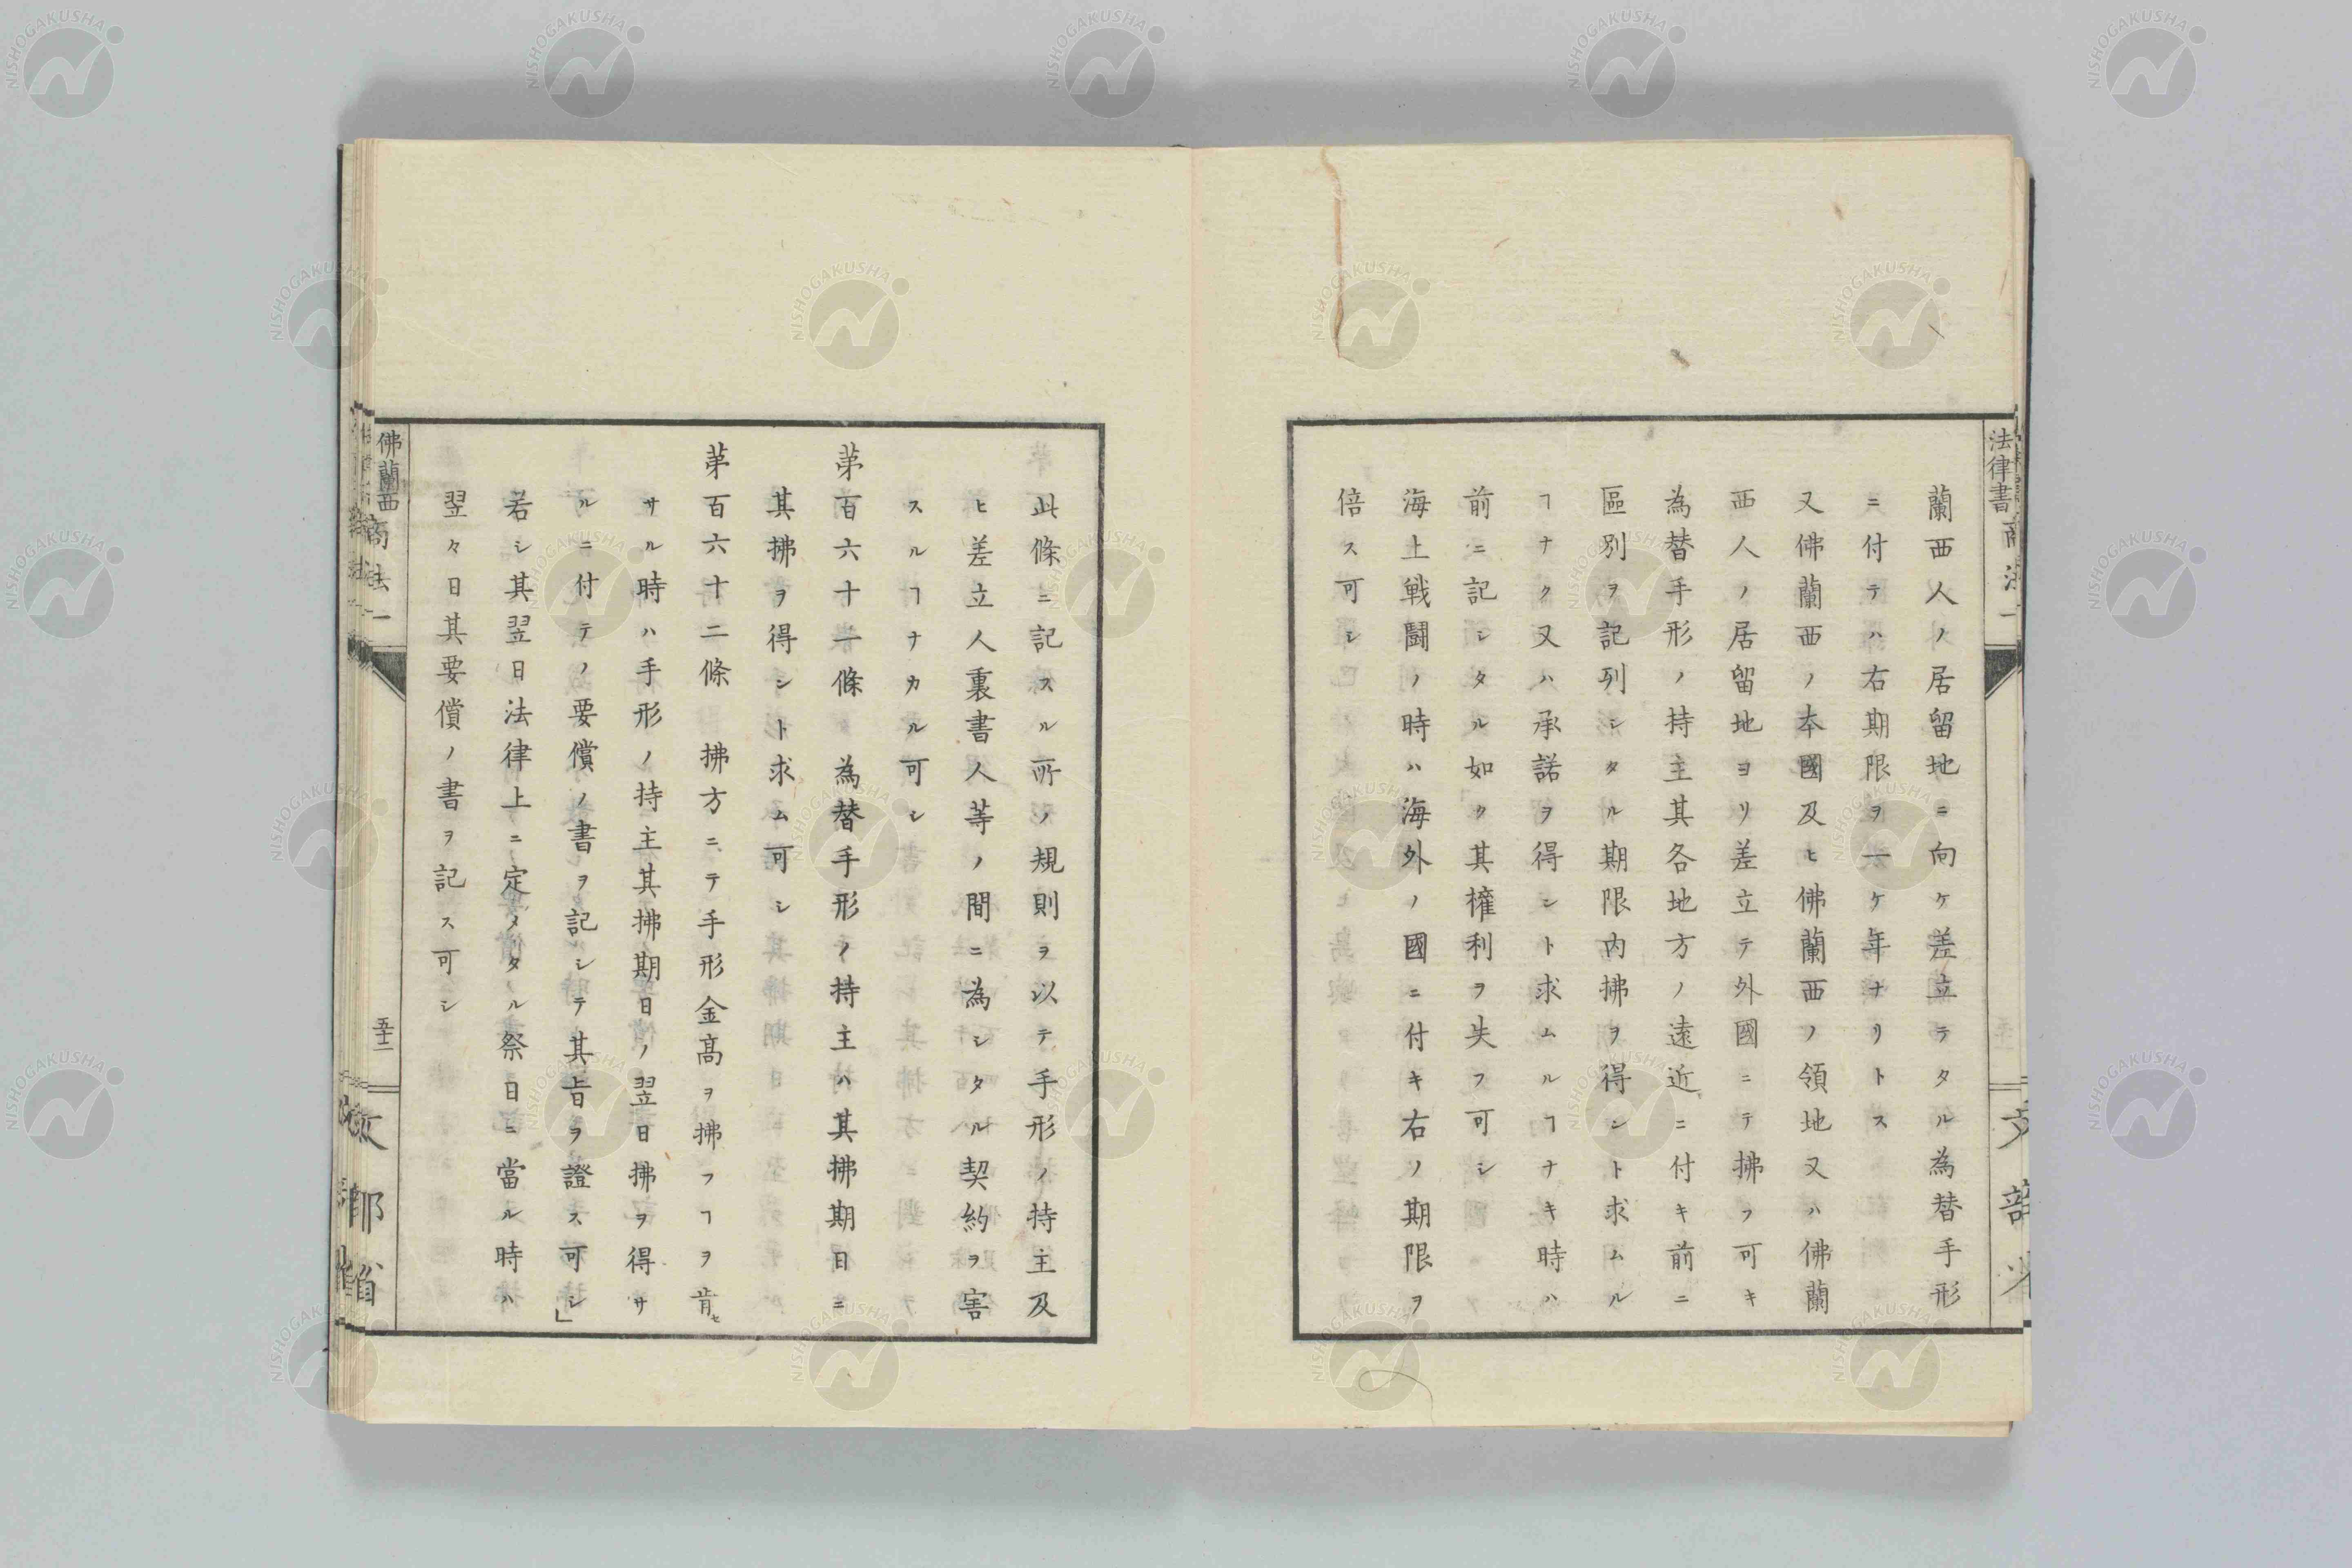 法律書 商法 一
蘭西人ノ居留地ニ向ケ差立テタル為替手形
ニ付テハ右期限ヲ一ケ年ナリトス
又佛蘭西ノ本國及ヒ佛蘭西ノ領地又ハ佛蘭
西人ノ居留地ヨリ差立テ外國ニテ拂フ可キ
為替手形ノ持主其各地方ノ遠近ニ付キ前ニ
區別ヲ記列シタル期限内拂ヲ得ント求ムル
ヿナク又ハ承諾ヲ得ント求ムルヿナキ時ハ
前ニ記シタル如ク其權利ヲ失フ可シ
海上戦鬪ノ時ハ海外ノ國ニ付キ右ノ期限ヲ
倍ス可シ
此條ニ記スル所ノ規則ヲ以テ手形ノ持主及
ヒ差立人裏書人等ノ間ニ為シタル契約ヲ害
スルヿナカル可シ
苐百六十一條 為替手形ノ持主ハ其拂期日ニ
其拂ヲ得ント求ム可シ
苐百六十二條 拂方ニテ手形金高ヲ拂フヿヲ肯セ
サル時ハ手形ノ持主其拂期日ノ翌日拂ヲ得サ
ルニ付テノ要償ノ書ヲ記シテ其旨ヲ證ス可シ」
若シ其翌日法律上ニ定メタル祭日ニ當ル時ハ
翌々日其要償ノ書ヲ記ス可シ
佛蘭西 商法 一
五十二
NISHOGAKUSHA